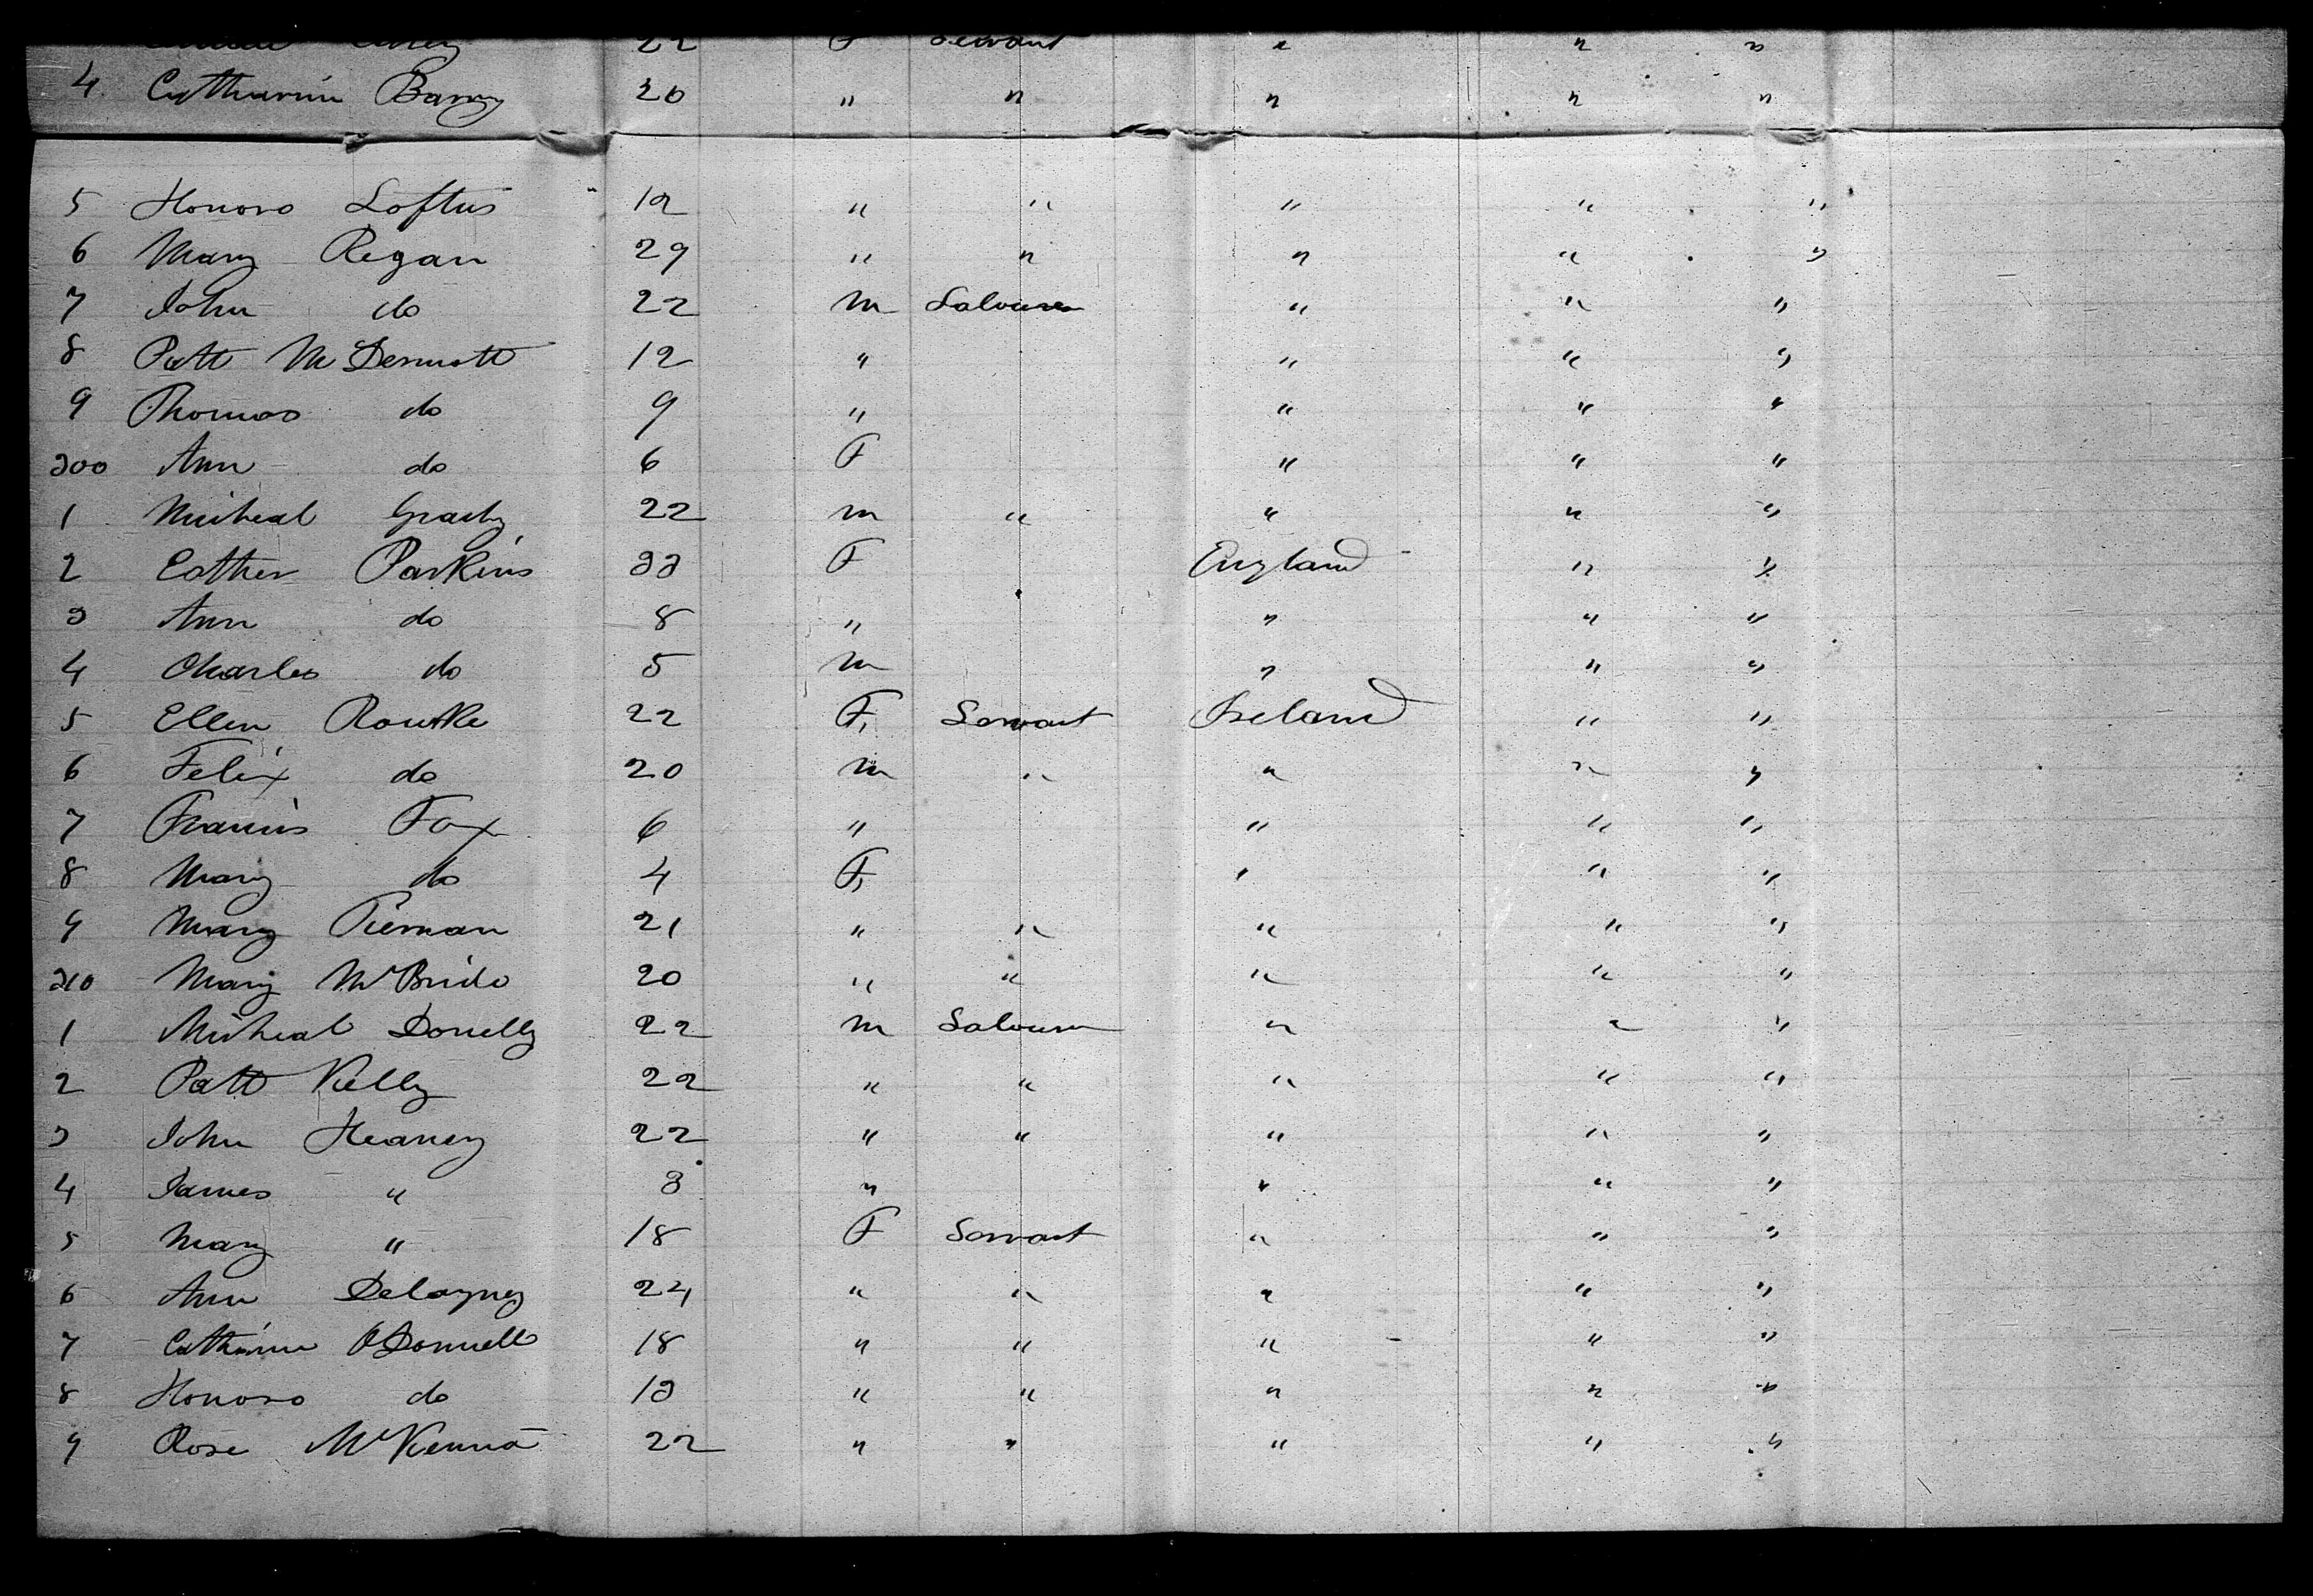 22 F Servant " " "
4 Catharine Barry 20 " " " " "
5 Honora Loftus 12 " " " " "
6 Mary Regan 29 " " " " "
7 John do 22 M Labourer " " "
8 Patt McDermott 12 " " " "
9 Thomas do 9 " " " "
200 Ann do 6 F " " "
1 Micheal Grady 22 M " " " "
2 Esther Parkins 33 F England " "
3 Ann do 8 " " " "
4 Charles do 5 M " " "
5 Ellen Rourke 22 F Servant Ireland " "
6 Felix do 20 M " " " "
7 Francis Fox 6 " " " "
8 Mary do 4 F " " "
9 Mary Tiernan 21 " " " " "
210 Mary McBride 20 " " " " "
1 Micheal Donelly 22 M Labourer " " "
2 Patt Kelly 22 " " " " "
3 John Heaney 22 " " " " "
4 James " 8 " " " "
5 Mary " 18 F Servant " " "
6 Ann Delayney 24 " " " " "
7 Catherine O'Donnell 18 " " " " "
8 Honora do 13 " " " " "
9 Rose McKenna 22 " " " " "